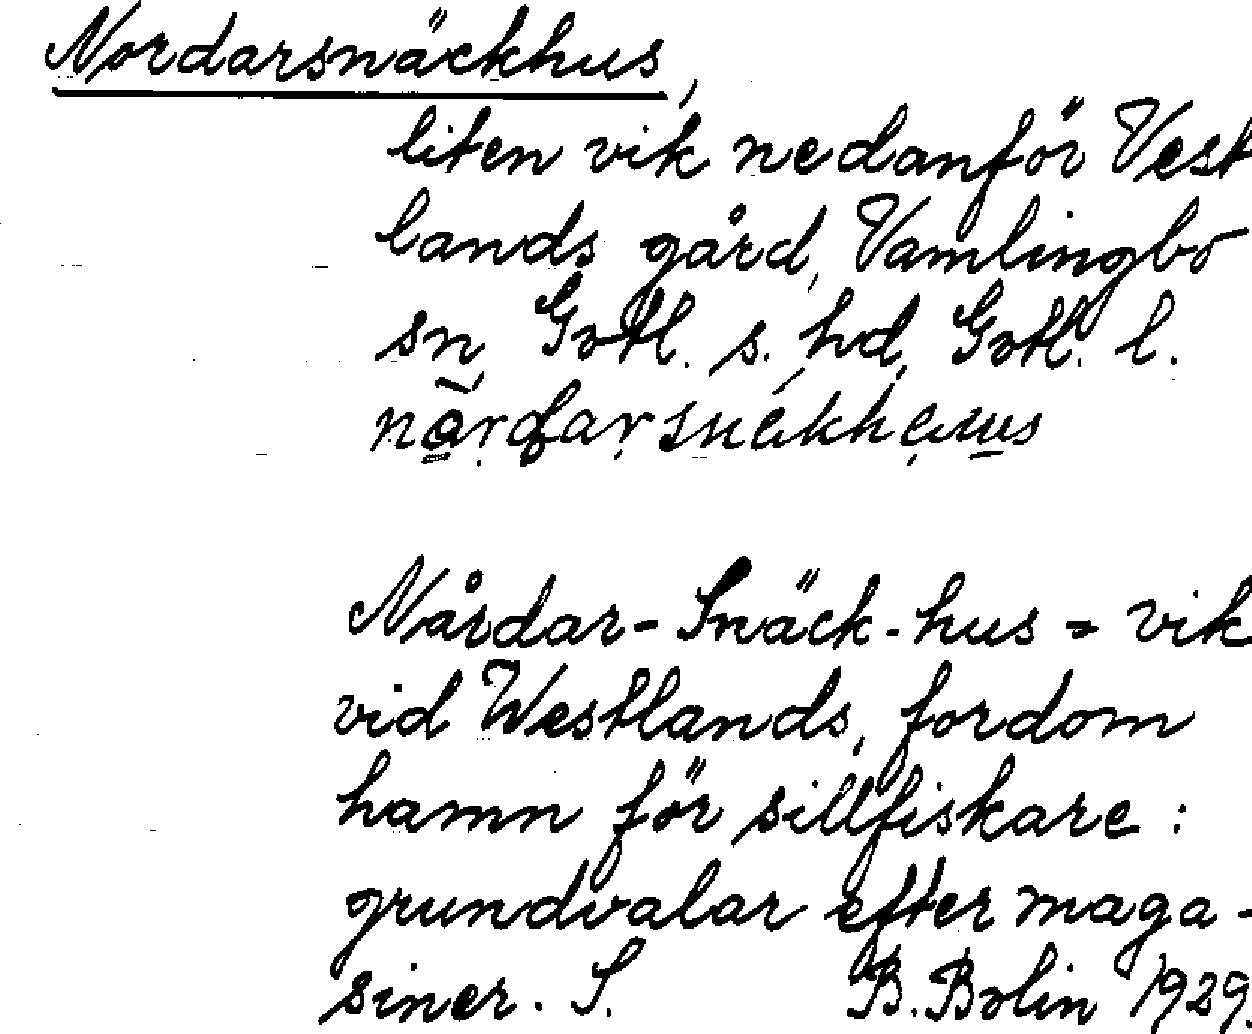 Nordarsnäckhus,
liten vik nedanför Vest
lands gård, Vamlingbo
sn, Gotl. s. hd, Gotl. l.
Nårdar-Snäck-hus = vik
vid Westlands, fordom
hamn för sillfiskare:
grundvalar efter maga-
siner. S. B. Bolin 1929.